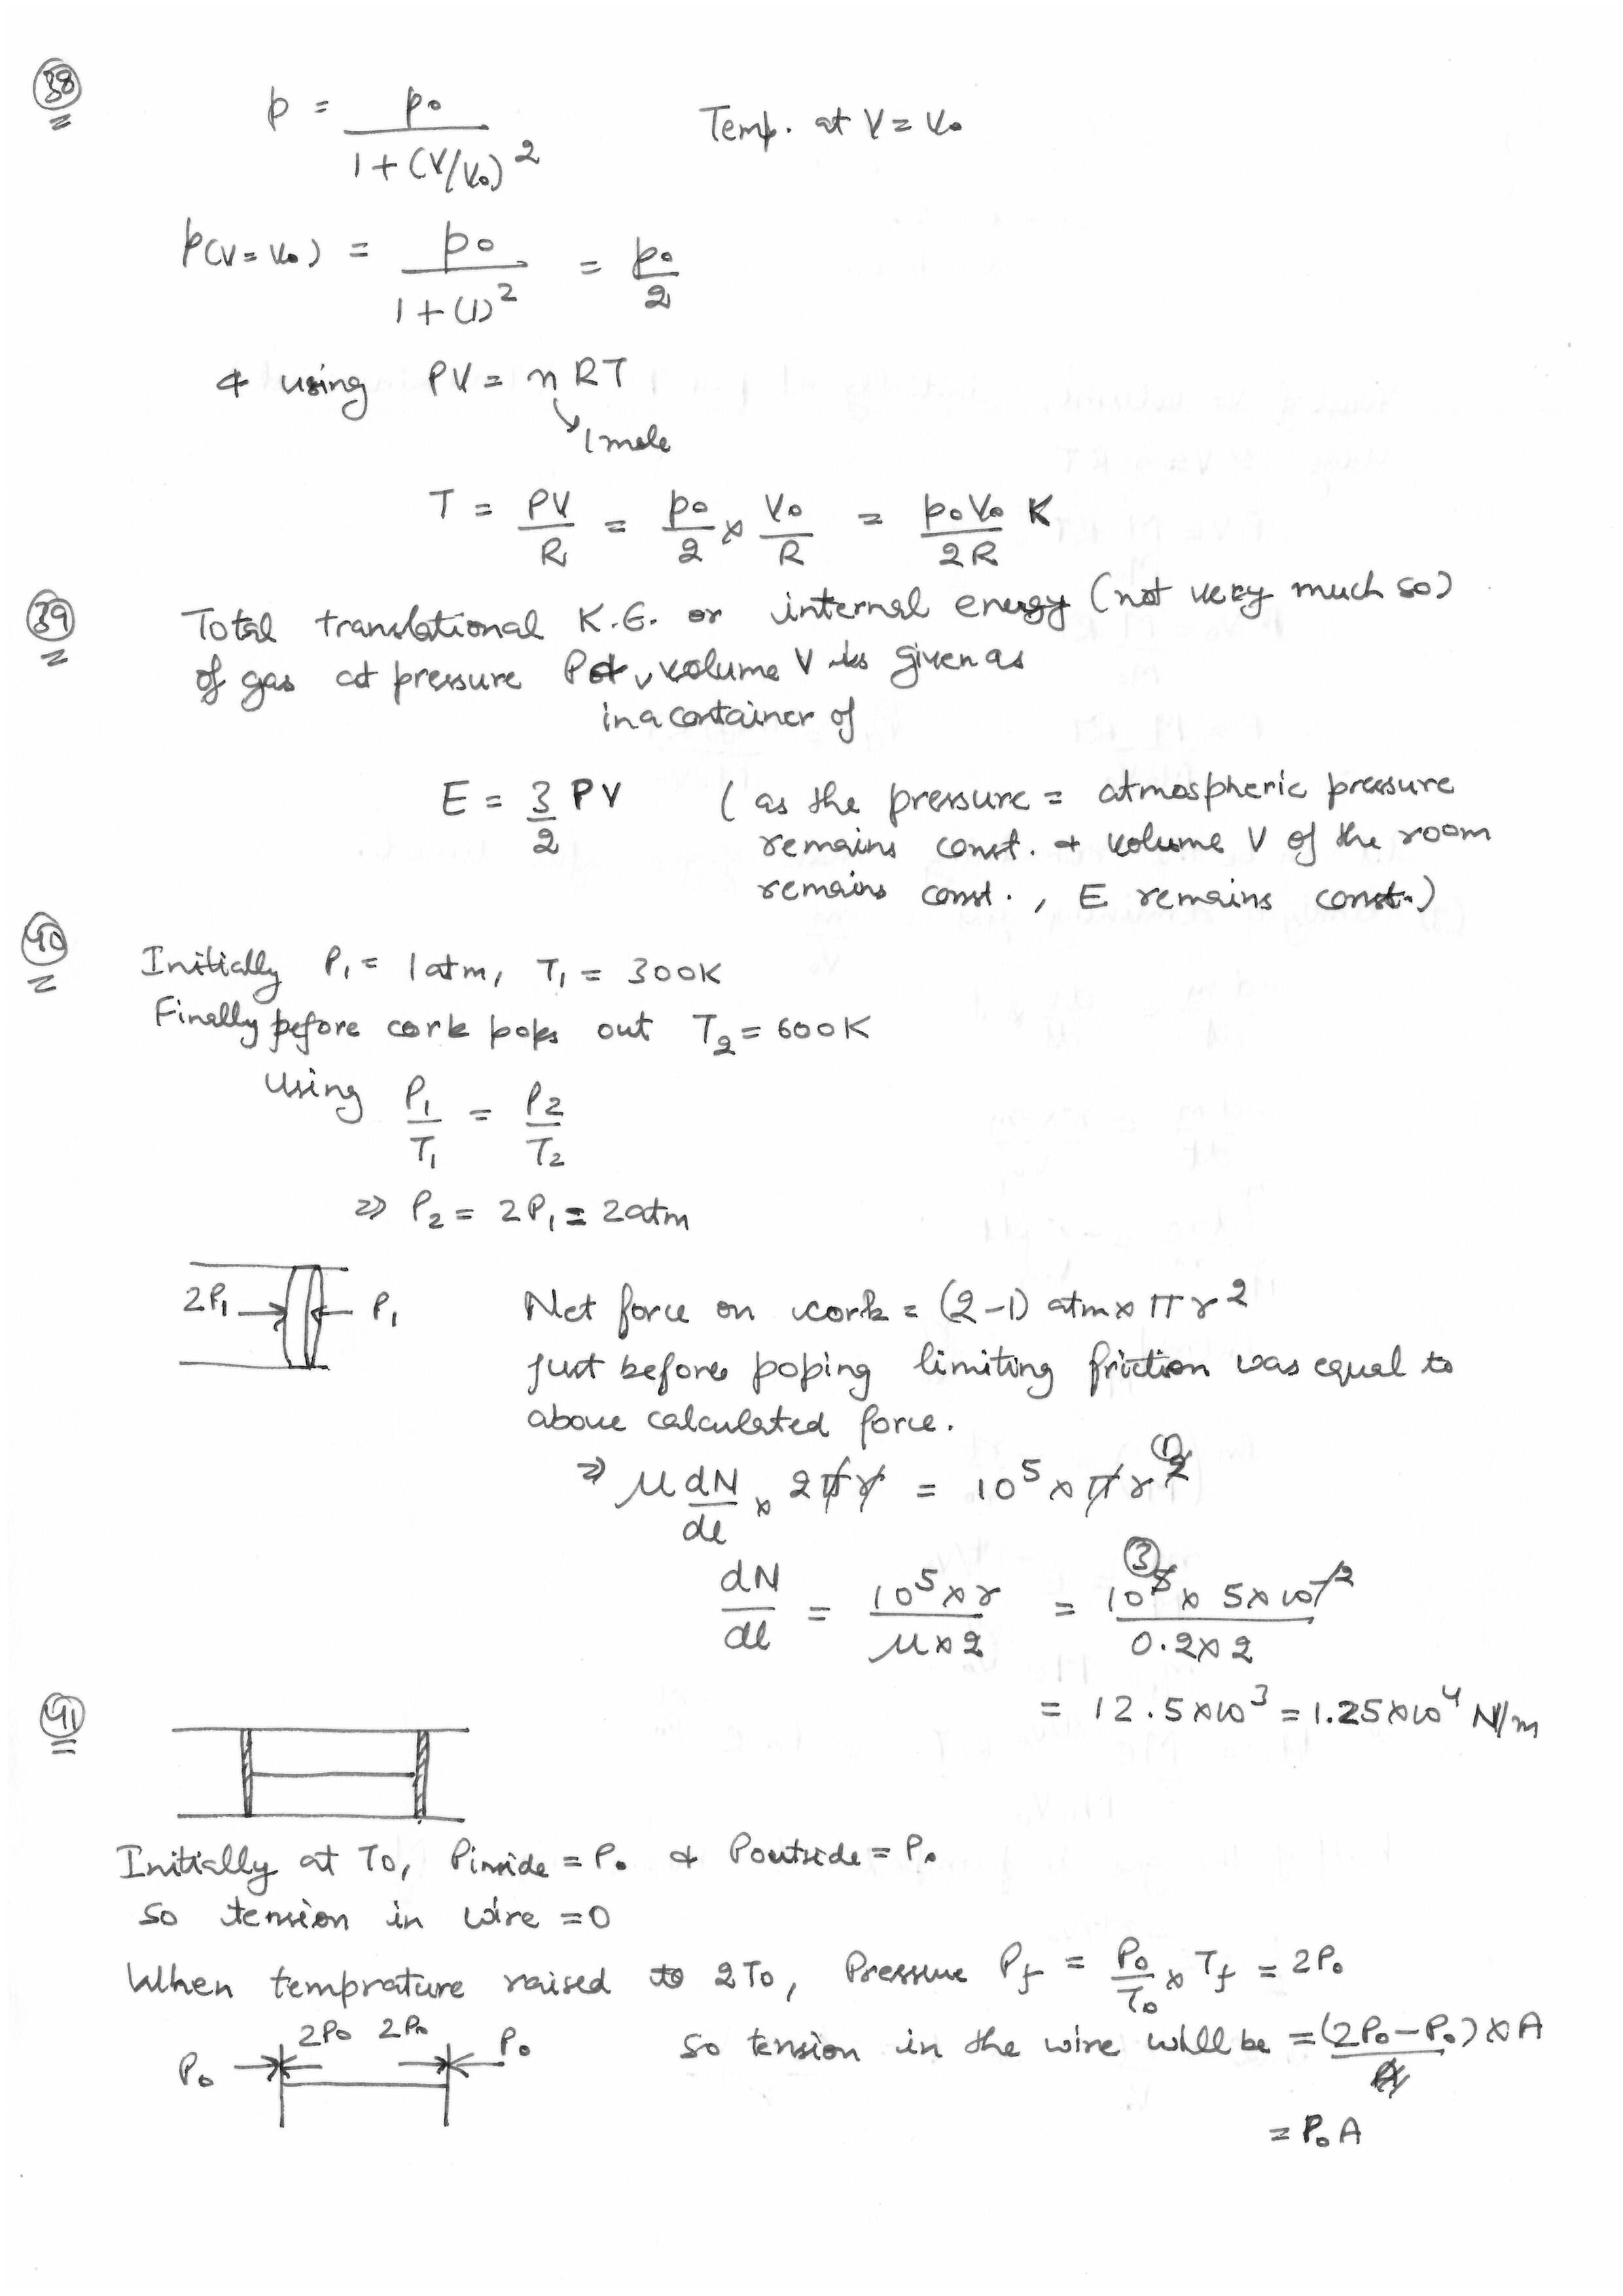 38
p = p₀ / (1 + (V/V₀)²)    Temp. at V = V₀
p(V = V₀) = p₀ / (1 + (1)²) = p₀/2
& using PV = nRT
↘ 1 mole
T = PV/R = p₀/2 × V₀/R = p₀V₀/2R K
39
Total translational K.E. or internal energy (not very much so)
of gas at pressure P volume V is given as
in a container of
E = 3/2 PV    (as the pressure = atmospheric pressure
remains const. & volume V of the room
remains const., E remains const.)
40
Initially P₁ = 1 atm, T₁ = 300K
Finally before cork pops out T₂ = 600K
Using P₁/T₁ = P₂/T₂
⇒ P₂ = 2P₁ = 2atm
2P₁ → ← P₁    Net force on cork = (2-1) atm × πr²
Just before poping limiting friction was equal to
above calculated force.
⇒ μ dN/dl × 2πr = 10⁵ × πr² ①
dN/dl = 10⁵ × r / μ × 2 = 10⁵ ③ × 5 × 10⁻² / 0.2 × 2
= 12.5 × 10³ = 1.25 × 10⁴ N/m
41
Initially at T₀, Pinside = P₀ & Poutside = P₀
so tension in wire = 0
When temprature raised to 2T₀, Pressure P_f = P₀/T₀ × T_f = 2P₀
P₀ 2P₀ 2P₀ P₀    So tension in the wire will be = (2P₀ - P₀) × A
= P₀A